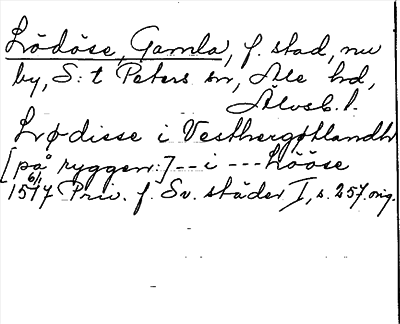 Lödöse, Gamla, f. stad, nu
by, S:t Peters sn, Ale hd,
Älvsb. l.
Lødisse i Vestbergøtlandh
[på ryggen:] -- i --- Lööse
1517 6/1 Priv. f. Sv. städer I, s. 257. orig.